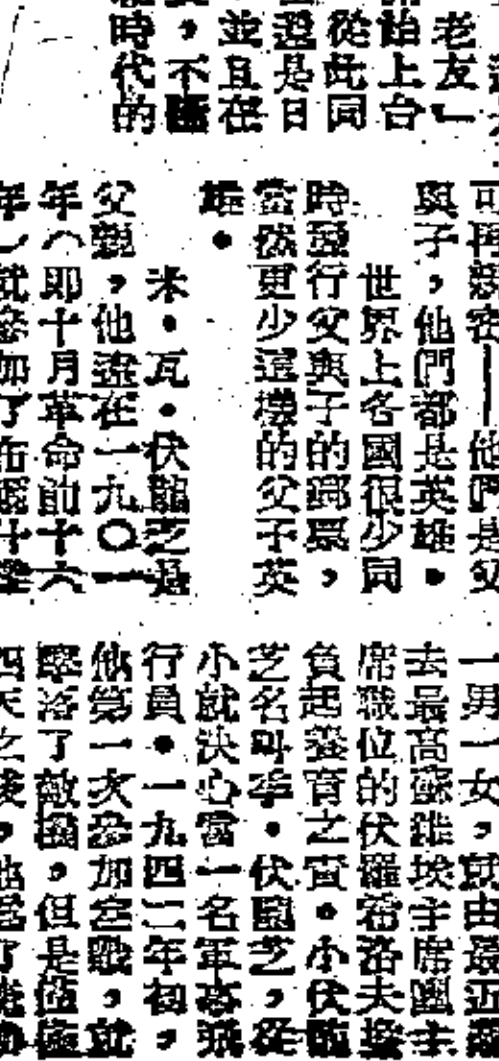 老友一
始上台
從此同
還是日
並且在
，不
時代的
與子，他們都是英雄。
世界上各國很少同
時發行父與子的郵票，
當然更少這樣的父子英
雄。
米・瓦・伏龍芝是
父親，他遠在一九〇一
年（即十月革命前十六
年）就參加了布
一男一女，就由最近
去最高蘇維埃主席團主
席職位的伏羅希洛夫
負起養育之責。小伏龍
芝名叫 ・伏龍芝，從
小就決心當一名軍 飛
行員。一九四二年初，
他第一次參加空戰，就
擊落了敵機，但是
四天之後，他